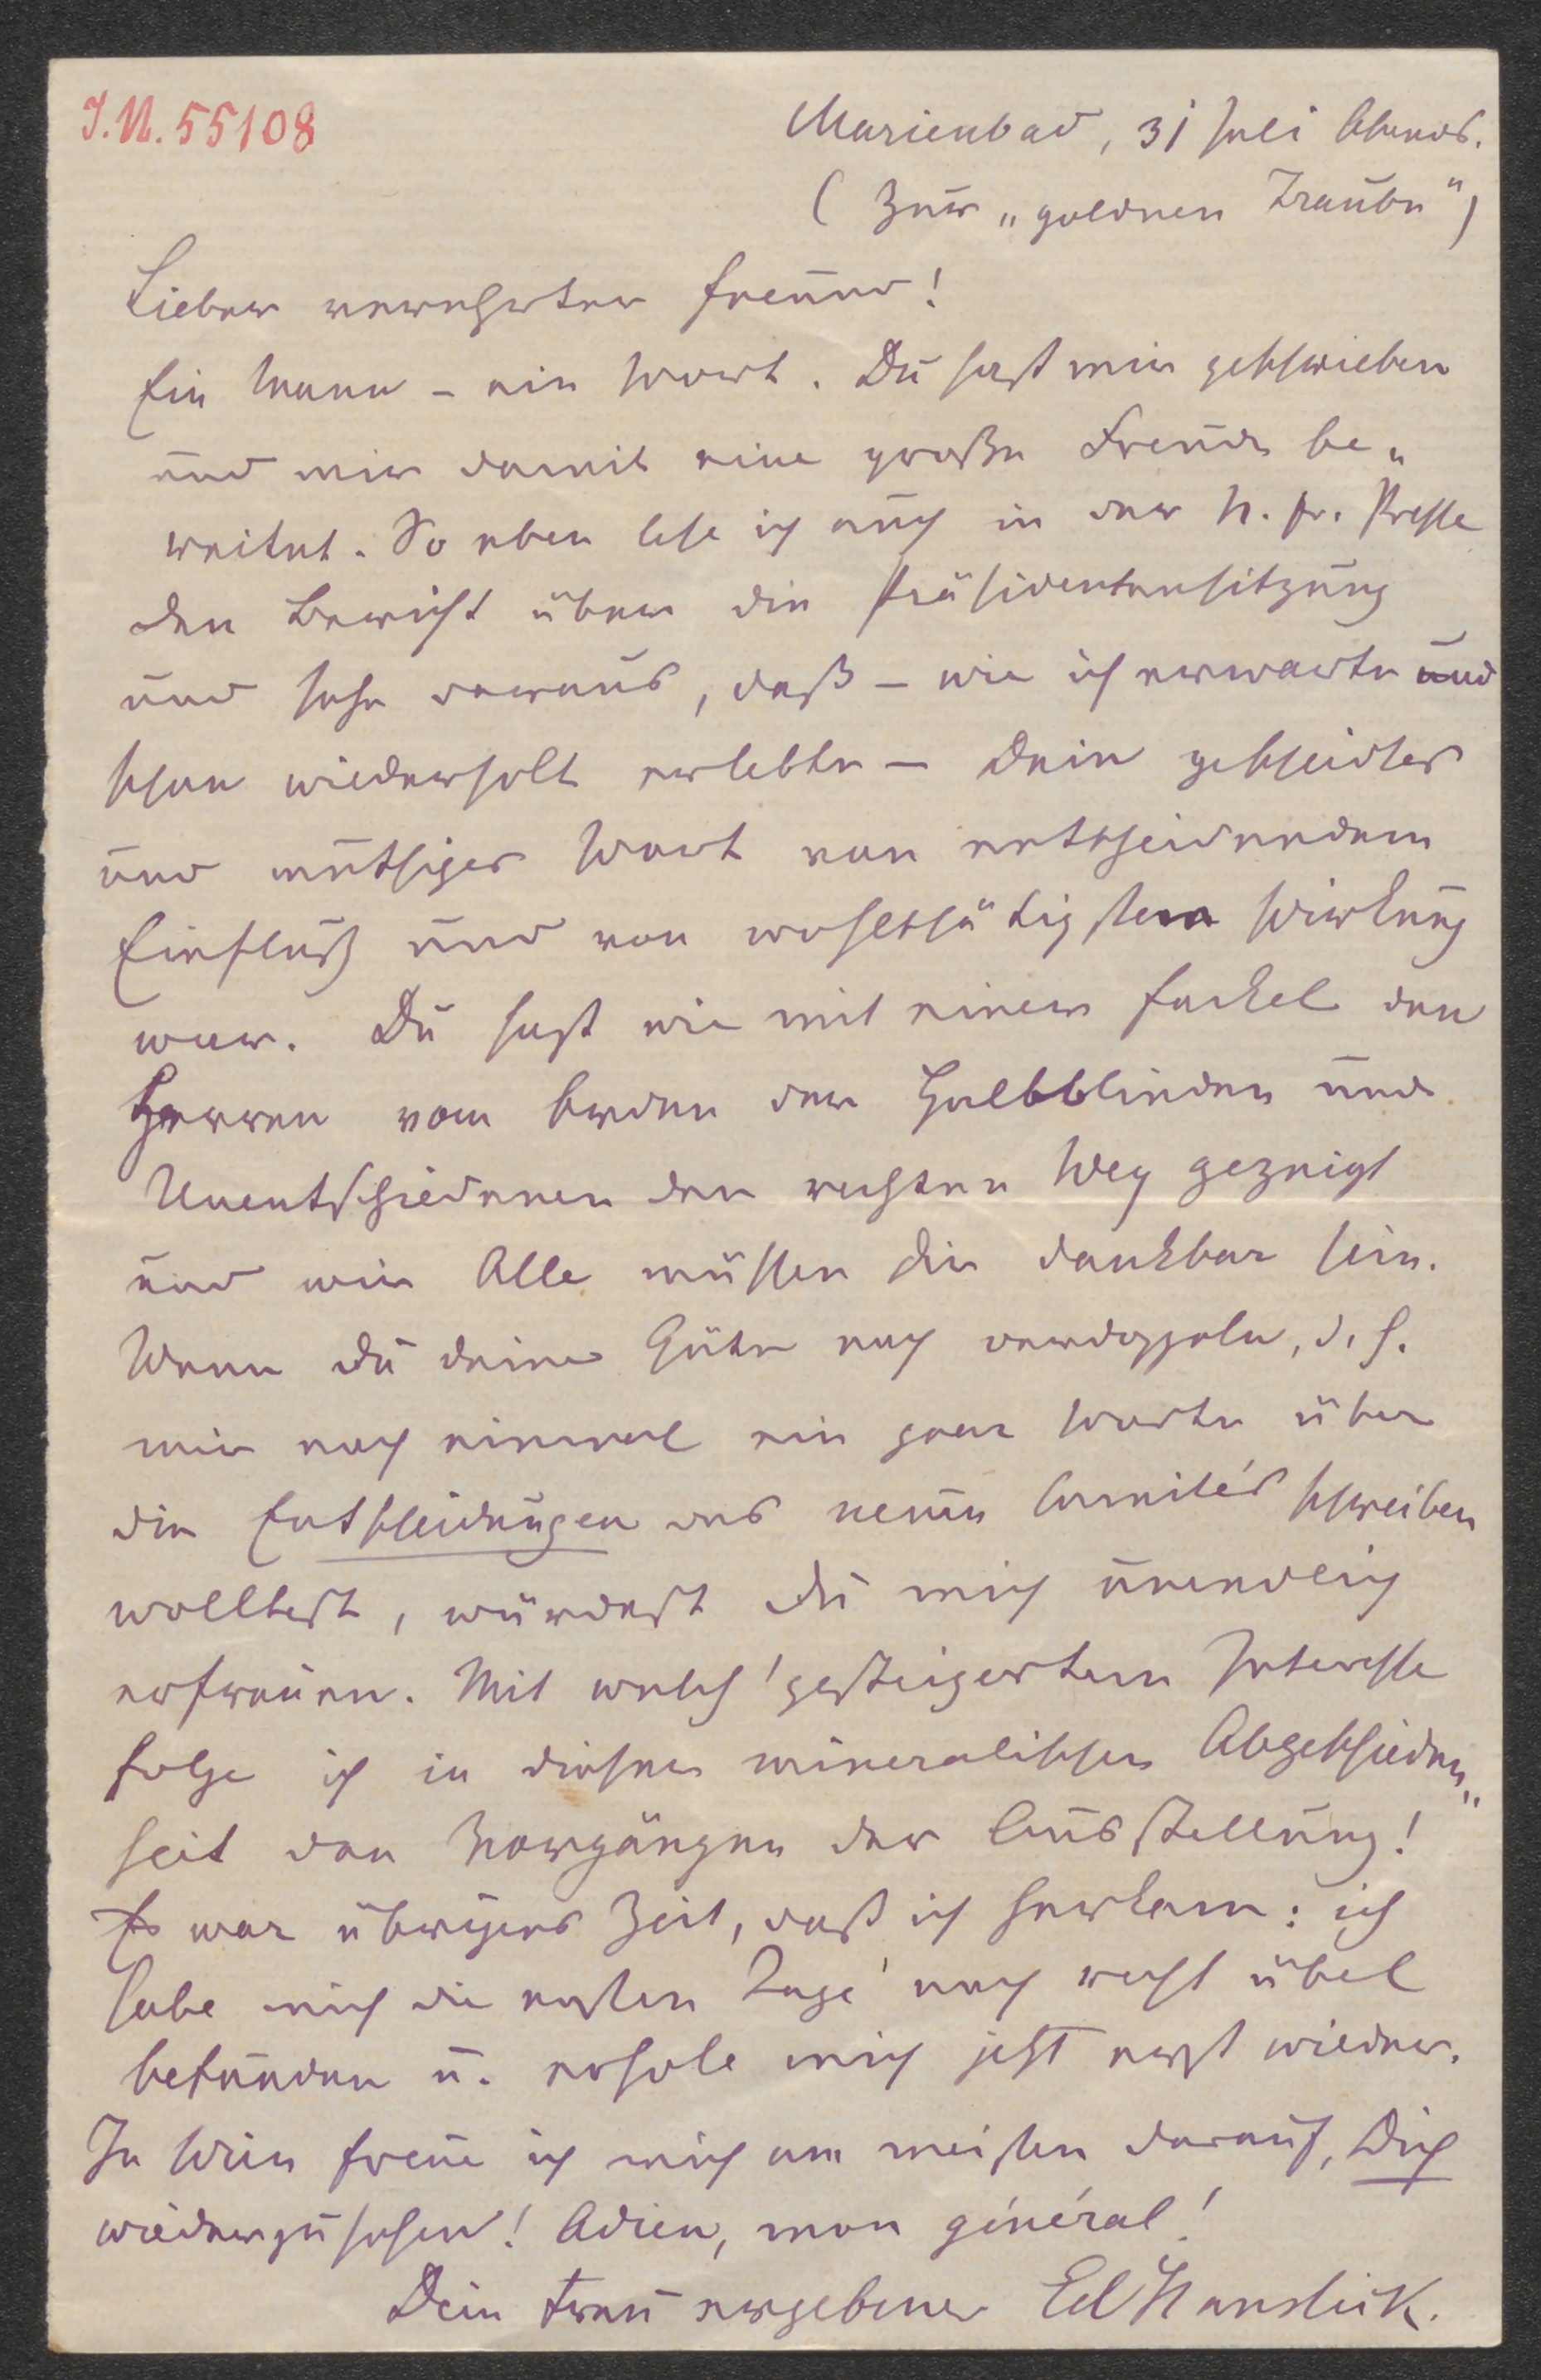 I.N. 55108
Marienbad, 31 Juli Abends.
(Zur „goldnen Traube")
Lieber verehrter Freund!
Ein Mann – ein Wort. Du hast mir geschrieben
und mir damit eine große Freude be„
reitet. So eben lese ich auch in der N. fr. Presse
den Bericht über die Präsidentensitzung
und sehe daraus, daß – wie ich erwartete und
schon wiederholt erlebte – Dein gescheidtes
und muthiges Wort von entscheidendem
Einfluß und von wohlthätigster Wirkung
war. Du hast wie mit einer Fackel den
Herren vom Orden der Halbblinden und
Unentschiedenen den rechten Weg gezeigt
und wir Alle müssen Dir dankbar sein.
Wenn Du deine Güte noch verdoppeln, d. h.
mir noch einmal ein paar Worte über
die Entscheidungen des neuen Comités schreiben
wolltest, würdest Du mich unendlich
erfreuen. Mit welch' gesteigertem Interesse
folge ich in dieser mineralischen Abgeschieden„
heit den Vorgängen der Ausstellung!
Es war übrigens Zeit, daß ich herkam: ich
habe mich die ersten Tage noch recht übel
befunden u. erhole mich jetzt erst wieder.
In Wien freue ich mich am meisten darauf, Dich
wiederzusehen! Adieu, mon général!
Dein treu ergebener Ed Hanslick.